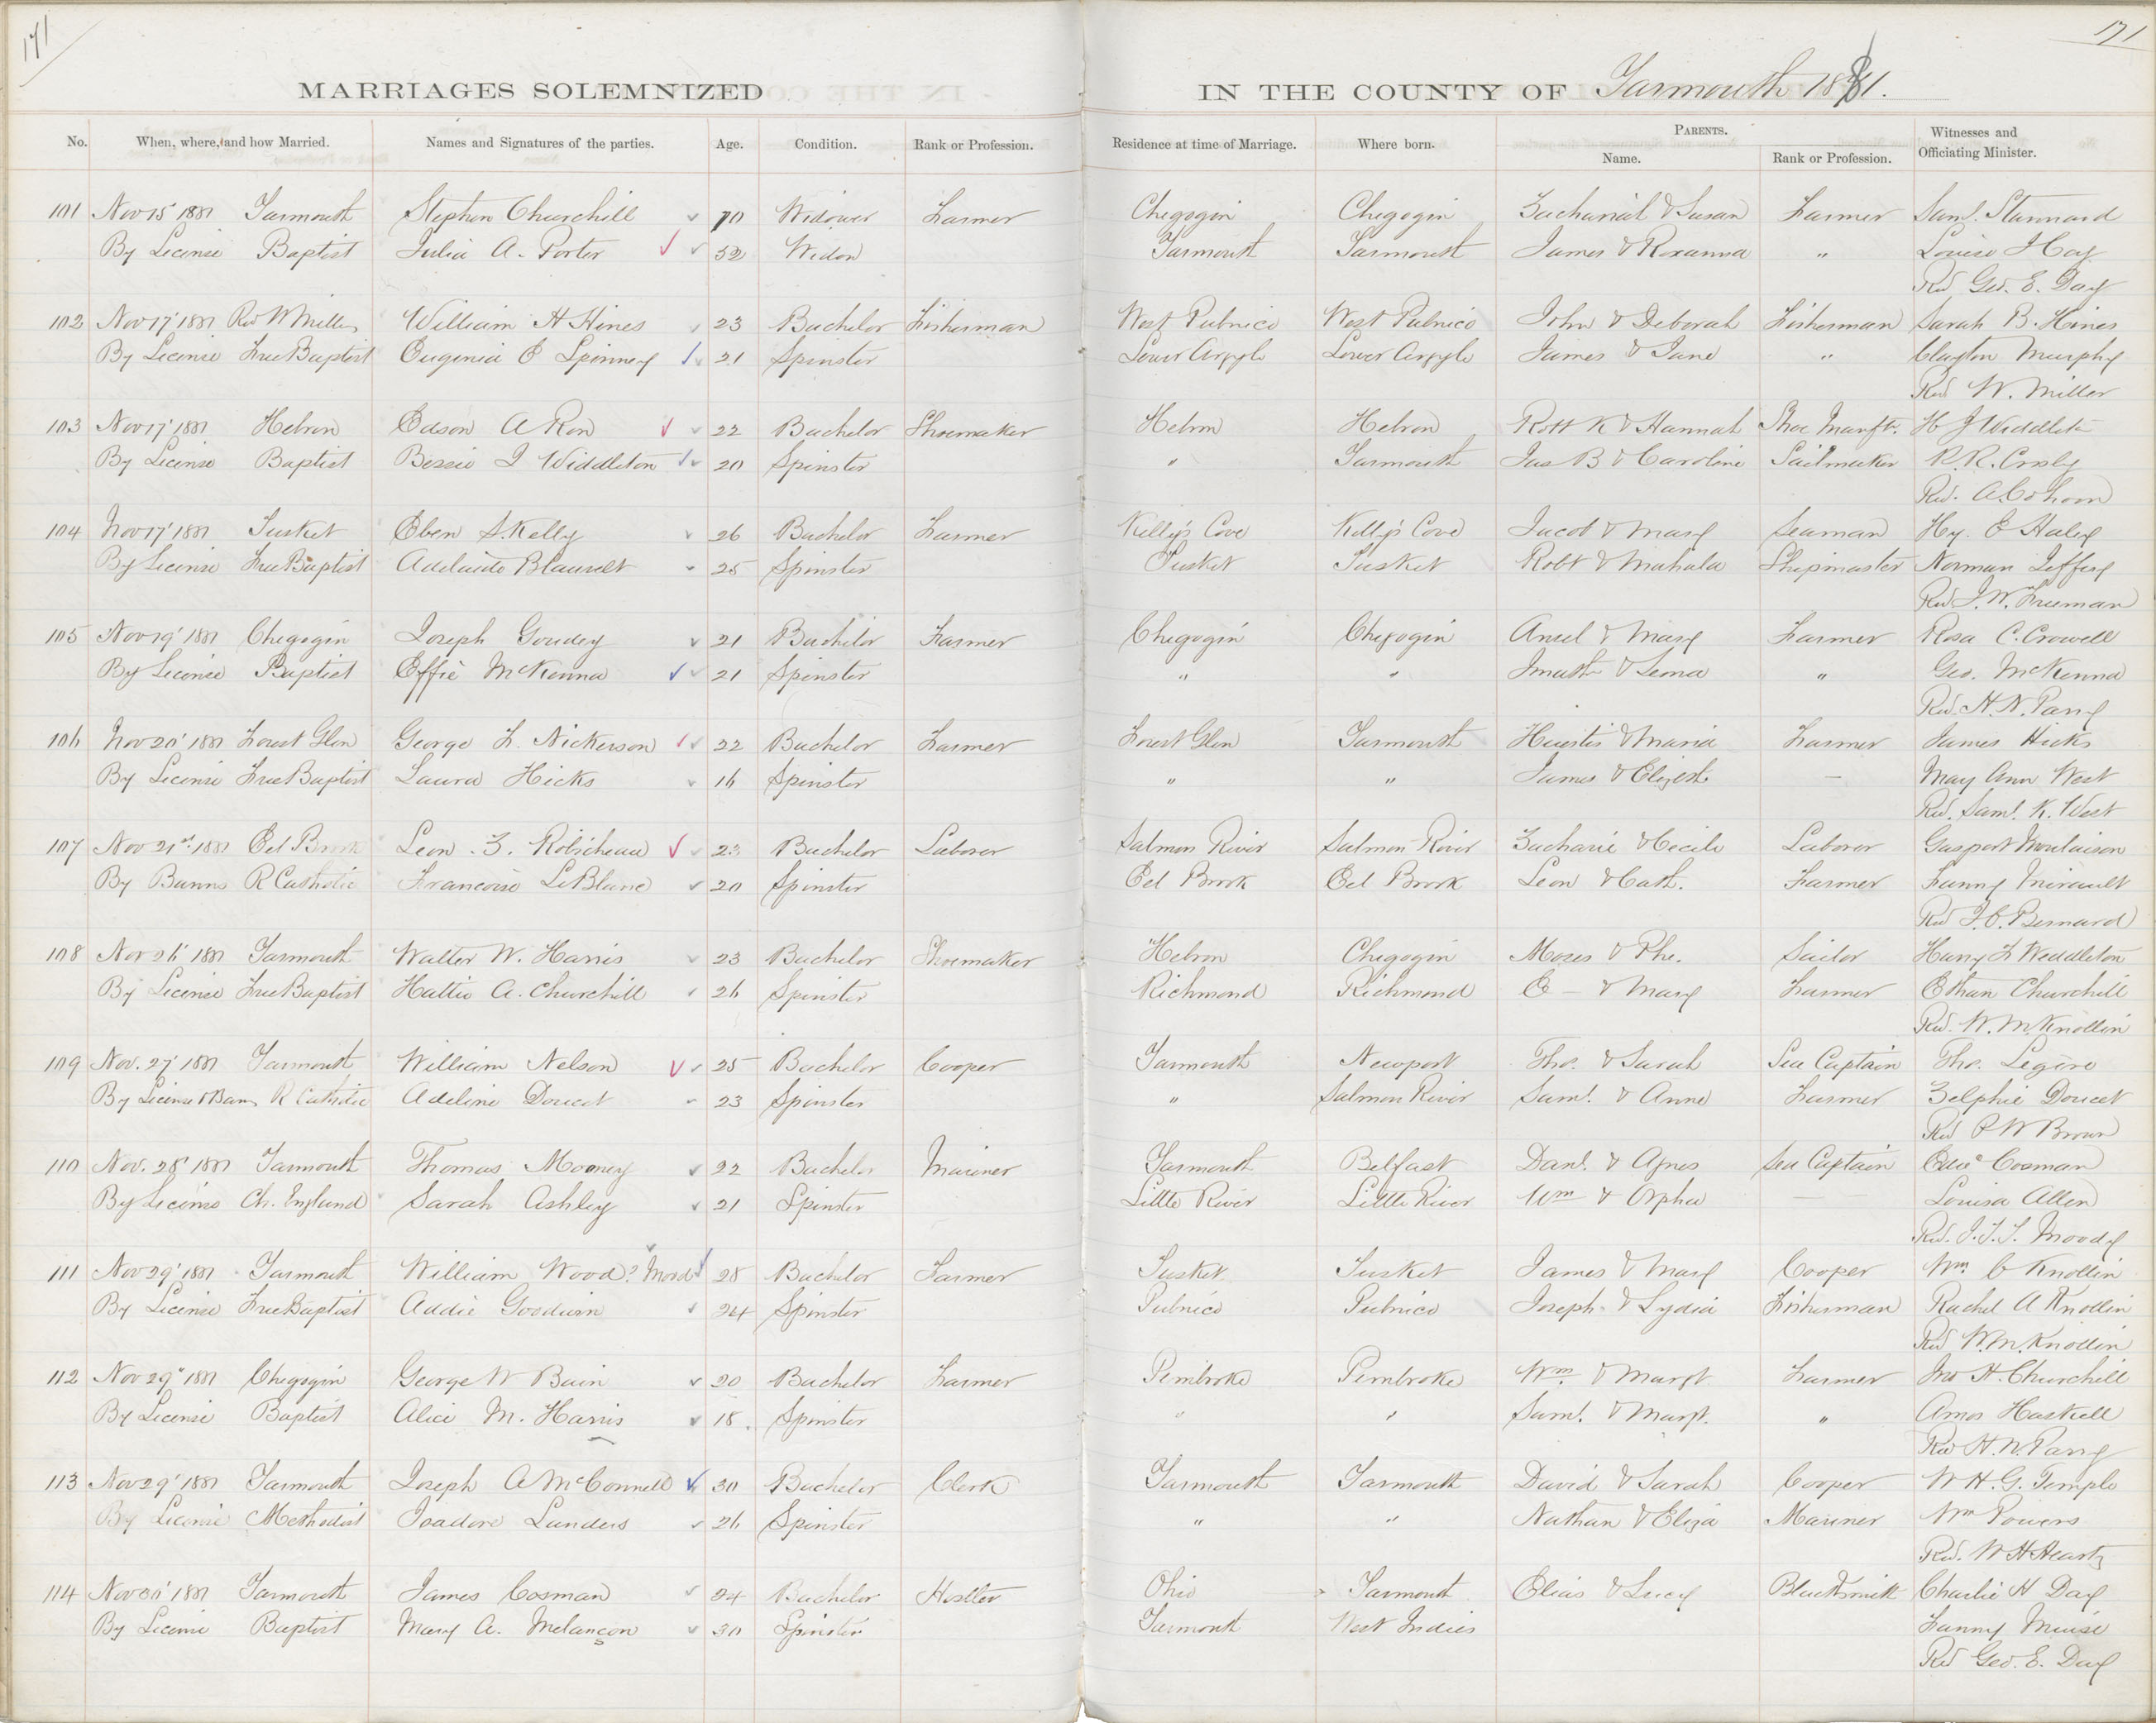 171
171
MARRIAGES SOLEMNIZED IN THE COUNTY OF Yarmouth 1881.
No. When, where, and how Married. Names and Signatures of the parties. Age. Condition. Rank or Profession. Residence at time of Marriage. Where born. PARENTS. Name. Rank or Profession. Witnesses and Officiating Minister.
101 Nov 15 1881 Yarmouth Stephen Churchill 70 Widower Farmer Chegogin Chegogin Zachariah & Susan Farmer Saml. Stannard
By License Baptist Julia A. Porter 52 Widow Yarmouth Yarmouth James & Roxanna " Louise J Hay
Rev Geo. E. Day
102 Nov 17' 1881 Rev W Miller William H Hines 23 Bachelor Fisherman West Pubnico West Pubnico John & Deborah Fisherman Sarah B. Hines
By License Free Baptist Eugenia E Spinney 21 Spinster Lower Argyle Lower Argyle James & Jane " Clayton Murphy
Rev W. Miller
103 Nov 17' 1881 Hebron Edson A Ron 22 Bachelor Shoemaker Hebron Hebron Robt K & Hannah Shoe Manft. H J Widdleton
By License Baptist Bessie I Widdleton 20 Spinster " Yarmouth Jas B & Caroline Sailmaker R. R. Crosby
Rev. A Cohoon
104 Nov 17' 1881 Tusket Eben S. Kelly 26 Bachelor Farmer Kelly's Cove Kelly's Cove Jacob & Mary Seaman Hy. E Haley
By License Free Baptist Adelaide Blauvelt 25 Spinster Tusket Tusket Robt & Mahala Shipmaster Norman Jeffery
Rev J. W. Freeman
105 Nov 19' 1881 Chegogin Joseph Goudey 21 Bachelor Farmer Chegogin Chegogin Ansel & Mary Farmer Rosa C. Crowell
By License Baptist Effie McKenna 21 Spinster " " & Lema " Geo. McKenna
Rev. H. N. Parry
106 Nov 20' 1881 Forest Glen George F. Nickerson 22 Bachelor Farmer Forest Glen Yarmouth Huestis & Maria Farmer James Hicks
By License Free Baptist Laura Hicks 16 Spinster " " James & Elizesh. — May Ann West
Rev. Saml. K. West
107 Nov 21st 1881 Eel Brook Leon Z. Robicheau 23 Bachelor Laborer Salmon River Salmon River Zacharie & Cecile Laborer Gaspart Moulaison
By Banns R Catholic Francoise LeBlanc 20 Spinster Eel Brook Eel Brook Leon & Cath. Farmer Fanny Mirault
Rev J. C. Bernard
108 Nov 26' 1881 Yarmouth Walter W. Harris 23 Bachelor Shoemaker Hebron Chegogin Moses & Phe. Sailor Harry F Weddleton
By License Free Baptist Hattie A. Churchill 26 Spinster Richmond Richmond E — & Mary Farmer Ethan Churchill
Rev. W. M. Knollin
109 Nov. 27' 1881 Yarmouth William Nelson 25 Bachelor Cooper Yarmouth Newport Tho. & Sarah Sea Captain Tho. Legere
By License & Bans R Catholic Adeline Doucet 23 Spinster " Salmon River Saml. & Anne Farmer Zelphie Doucet
Rev P W Brown
110 Nov. 28' 1881 Yarmouth Thomas Mooney 22 Bachelor Mariner Yarmouth Belfast Danl. & Agnes Sea Captain Edwd Cosman
By License Ch. England Sarah Ashley 21 Spinster Little River Little River Wm & Orpha — Louisa Allen
Rev. J. T. T. Moody
111 Nov 29' 1881 Yarmouth William Wood? Mood 28 Bachelor Farmer Tusket Tusket James & Mary Cooper Wm. C Knollin
By License Free Baptist Addie Goodwin 24 Spinster Pubnico Pubnico Joseph & Lydia Fisherman Rachel A Knollin
Rev W. M. Knollin
112 Nov 29' 1881 Chegogin George W Bain 20 Bachelor Farmer Pembroke Pembroke Wm. & Margt Farmer Jno H. Churchill
By License Baptist Alice M. Harris 18. Spinster " " Saml. & Margt. " Amos Haskell
Rev H. N. Parry
113 Nov 29' 1881 Yarmouth Joseph A McConnell 30 Bachelor Clerk Yarmouth Yarmouth David & Sarah Cooper W H. G. Temple
By License Methodist Isadore Landers 26 Spinster " " Nathan & Eliza Mariner Wm Powers
Rev. W H Heartz
114 Nov 30' 1881 Yarmouth James Cosman 24 Bachelor Hostler Ohio Yarmouth Elias & Lucy Blacksmith Charlie H Day
By License Baptist Mary A. Melançon 30 Spinster Yarmouth West Indies Fanny Muise
Rev Geo. E. Day